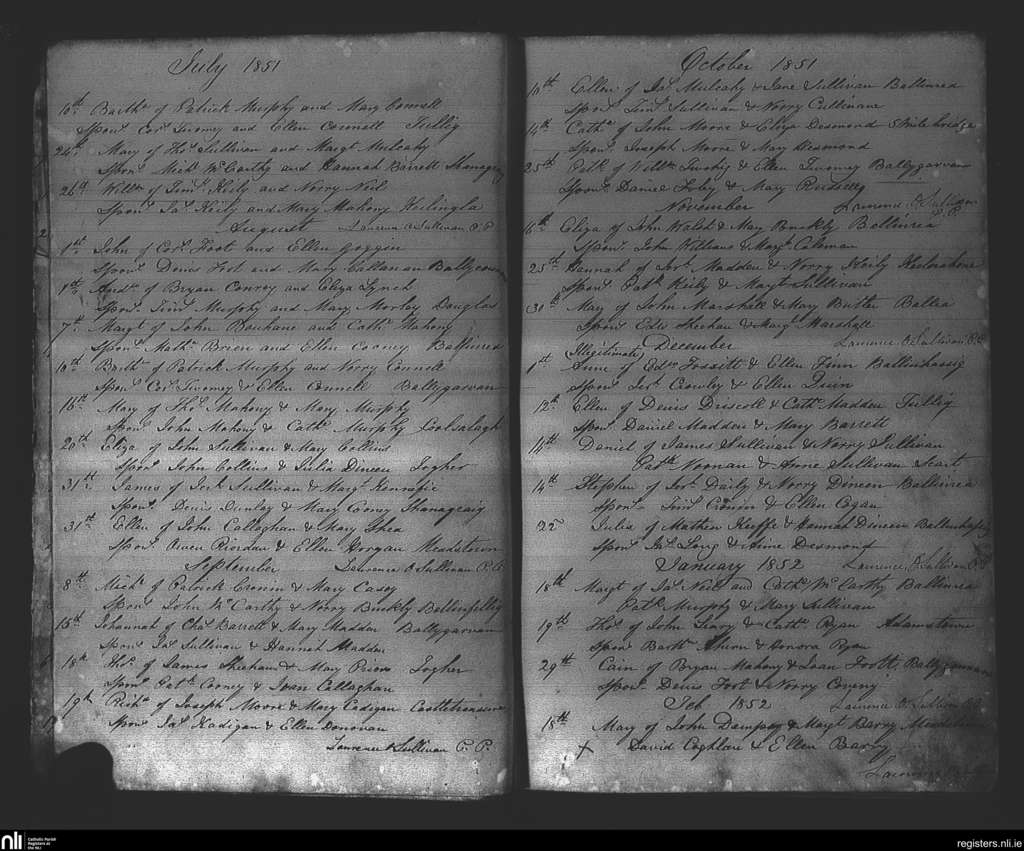 July 1851
10th Barthw of Patrick Murphy and Mary Connell
Spons. Cors. Twomey and Ellen Connell Tullig
24th Mary of Thos. Sullivan and Margt Mulcahy
Spons. Mich McCarthy and Hannah Barrett Shanagraig
26th Willm of Timy. Keily and Norry Neil
Spons. Jas. Keily and Mary Mahony
August Laurence O Sullivan P.P.
1st John of Cors. Foot and Ellen Goggin
Spons. Denis Foot and Mary Callanan
1st Andw. of Bryan Conroy and Eliza Lynch
Spons. Timy. Murphy and Mary Morley Douglas
7th Margt of John and Cathe. Mahony
Spons. Mathw. Brien and Ellen Cooney Ballinrea
10th Barthw. of Patrick Murphy and Norry Connell
Spons. Cors. Twomey & Ellen Connell Ballygarvan
16th Mary of Thos. Mahony & Mary Murphy
Spons. John Mahony & Cathe. Murphy
20th Eliza of John Sullivan & Mary Collins
Spons. John Collins & Julia Dineen Togher
31st James of Jerh. Sullivan & Margt.
Spons. Denis Dunlay & Mary Cooney Shanagraig
31st Ellen of John Callaghan & Mary Shea
Spons. Owen Riordan & Ellen Horgan Meadstown
September Laurence O Sullivan P.P.
8th Michl. of Patrick Cronin & Mary Casey
Spons. John McCarthy & Norry Buckly
15th Johannah of Chas. Barrett & Mary Madden Ballygarvan
Spons. Jas. Sullivan & Hannah Madden
18th Thos. of James Sheehan & Mary Togher
Spons. Patk. Cooney & Joan Callaghan
19th Richd. of Joseph Moore & Mary Castletreasure
Spons. Jas. Hadigan & Ellen Donovan
Laurence O Sullivan P. P.
October 1851
10th Ellen of Jas. Mulcahy & Jane Sullivan Ballinrea
Spons. Timy. Sullivan & Norry Cullinane
14th Cathe. of John Moore & Eliza Desmond
Spons. Joseph Moore & Mary Desmond
25th Patk of Willm & Ellen Twomey Ballygarvan
Spons. Daniel & Mary
November Laurence O Sullivan P.P.
16th Eliza of John Walsh & Mary Buckly Ballinrea
Spons. John Williams & Margt. Coleman
25th Hannah of Jerh. Madden & Norry Keily
Spons. Patk. Keily & Margt Sullivan
30th Mary of John Marshall & Mary Butler Ballea
Spons. Edw Sheehan & Margt. Marshall
(Illegitimate) December Laurence O Sullivan P.P.
1st of Edw Fossitt & Ellen Finn Ballinhassig
Spons. Jerh. Crowley & Ellen Quin
12th Ellen of Denis Driscoll & Cathe. Madden Tullig
Spons. Daniel Madden & Mary Barrett
14th Daniel of James Sullivan & Norry Sullivan
Patk Noonan & Anne Sullivan
14th Stephen of Jerh. Daily & Norry Dineen Ballinrea
Spons. Timy. Cronin & Ellen Cogan
22nd Julia of Mathew Keeffe & Hannah Dineen Ballinhassig
Spons. Jas. Long & Anne Desmond
January 1852 Laurence O Sullivan P.P.
18th Margt of Jas. Neill and Cathe. McCarthy Ballinrea
Patk. Murphy & Mary Sullivan
19th Thos. of John Leary & Cathe. Ryan Adamstown
Spons. Barthw. Ahern & Honora Ryan
29th of Bryan Mahony & Joan Foott Ballygarvan
Spons. Denis Foot & Norry Coveny
Feb 1852 Laurence O Sullivan P.P.
18th Mary of John Dempsey & Margt Barry Meadstown
David Coghlan & Ellen Barry
Laurence
nli
Catholic Parish Registers at the NLI
registers.nli.ie